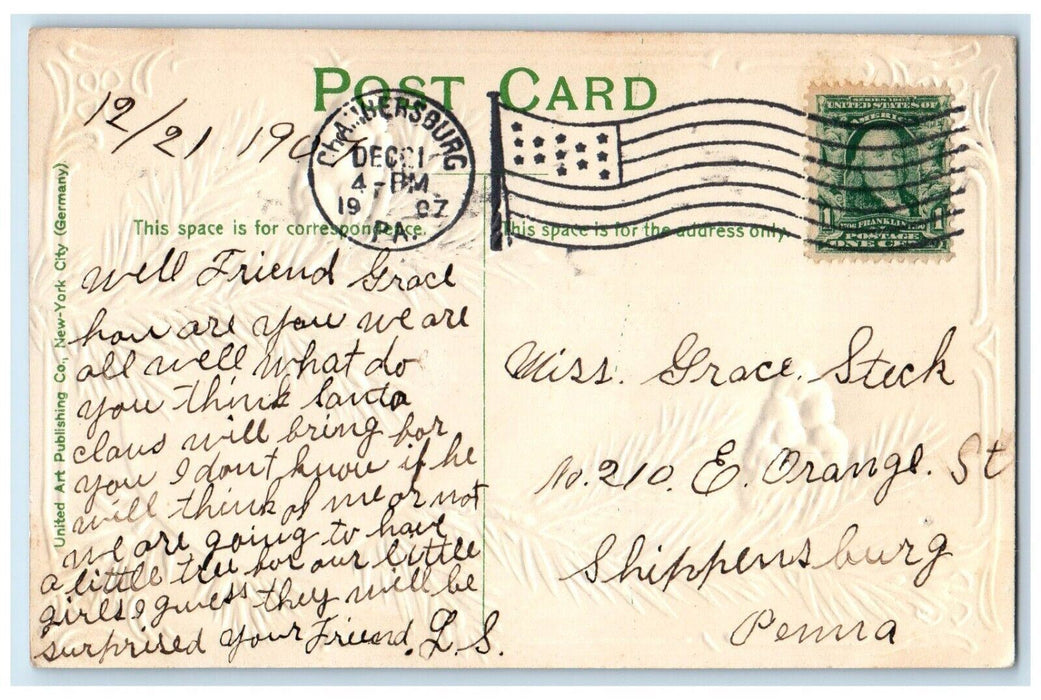 POST CARD
12/21 190
CHAMBERSBURG
DEC 21
4-PM
1907
PA.
SERIES 1902
UNITED STATES OF
AMERICA
FRANKLIN
1 1
POSTAGE
ONE CENT
This space is for correspondence.
This space is for the address only.
United Art Publishing Co., New-York City (Germany)
Well Friend Grace
how are you we are
all well what do
you think Santa
claus will bring for
you I dont know if he
will think of me or not
we are going to have
a little tree for our little
girls I guess they will be
surprised your Friend. L. S.
Miss. Grace. Steck
No. 210. E. Orange. St
Shippensburg
Penna